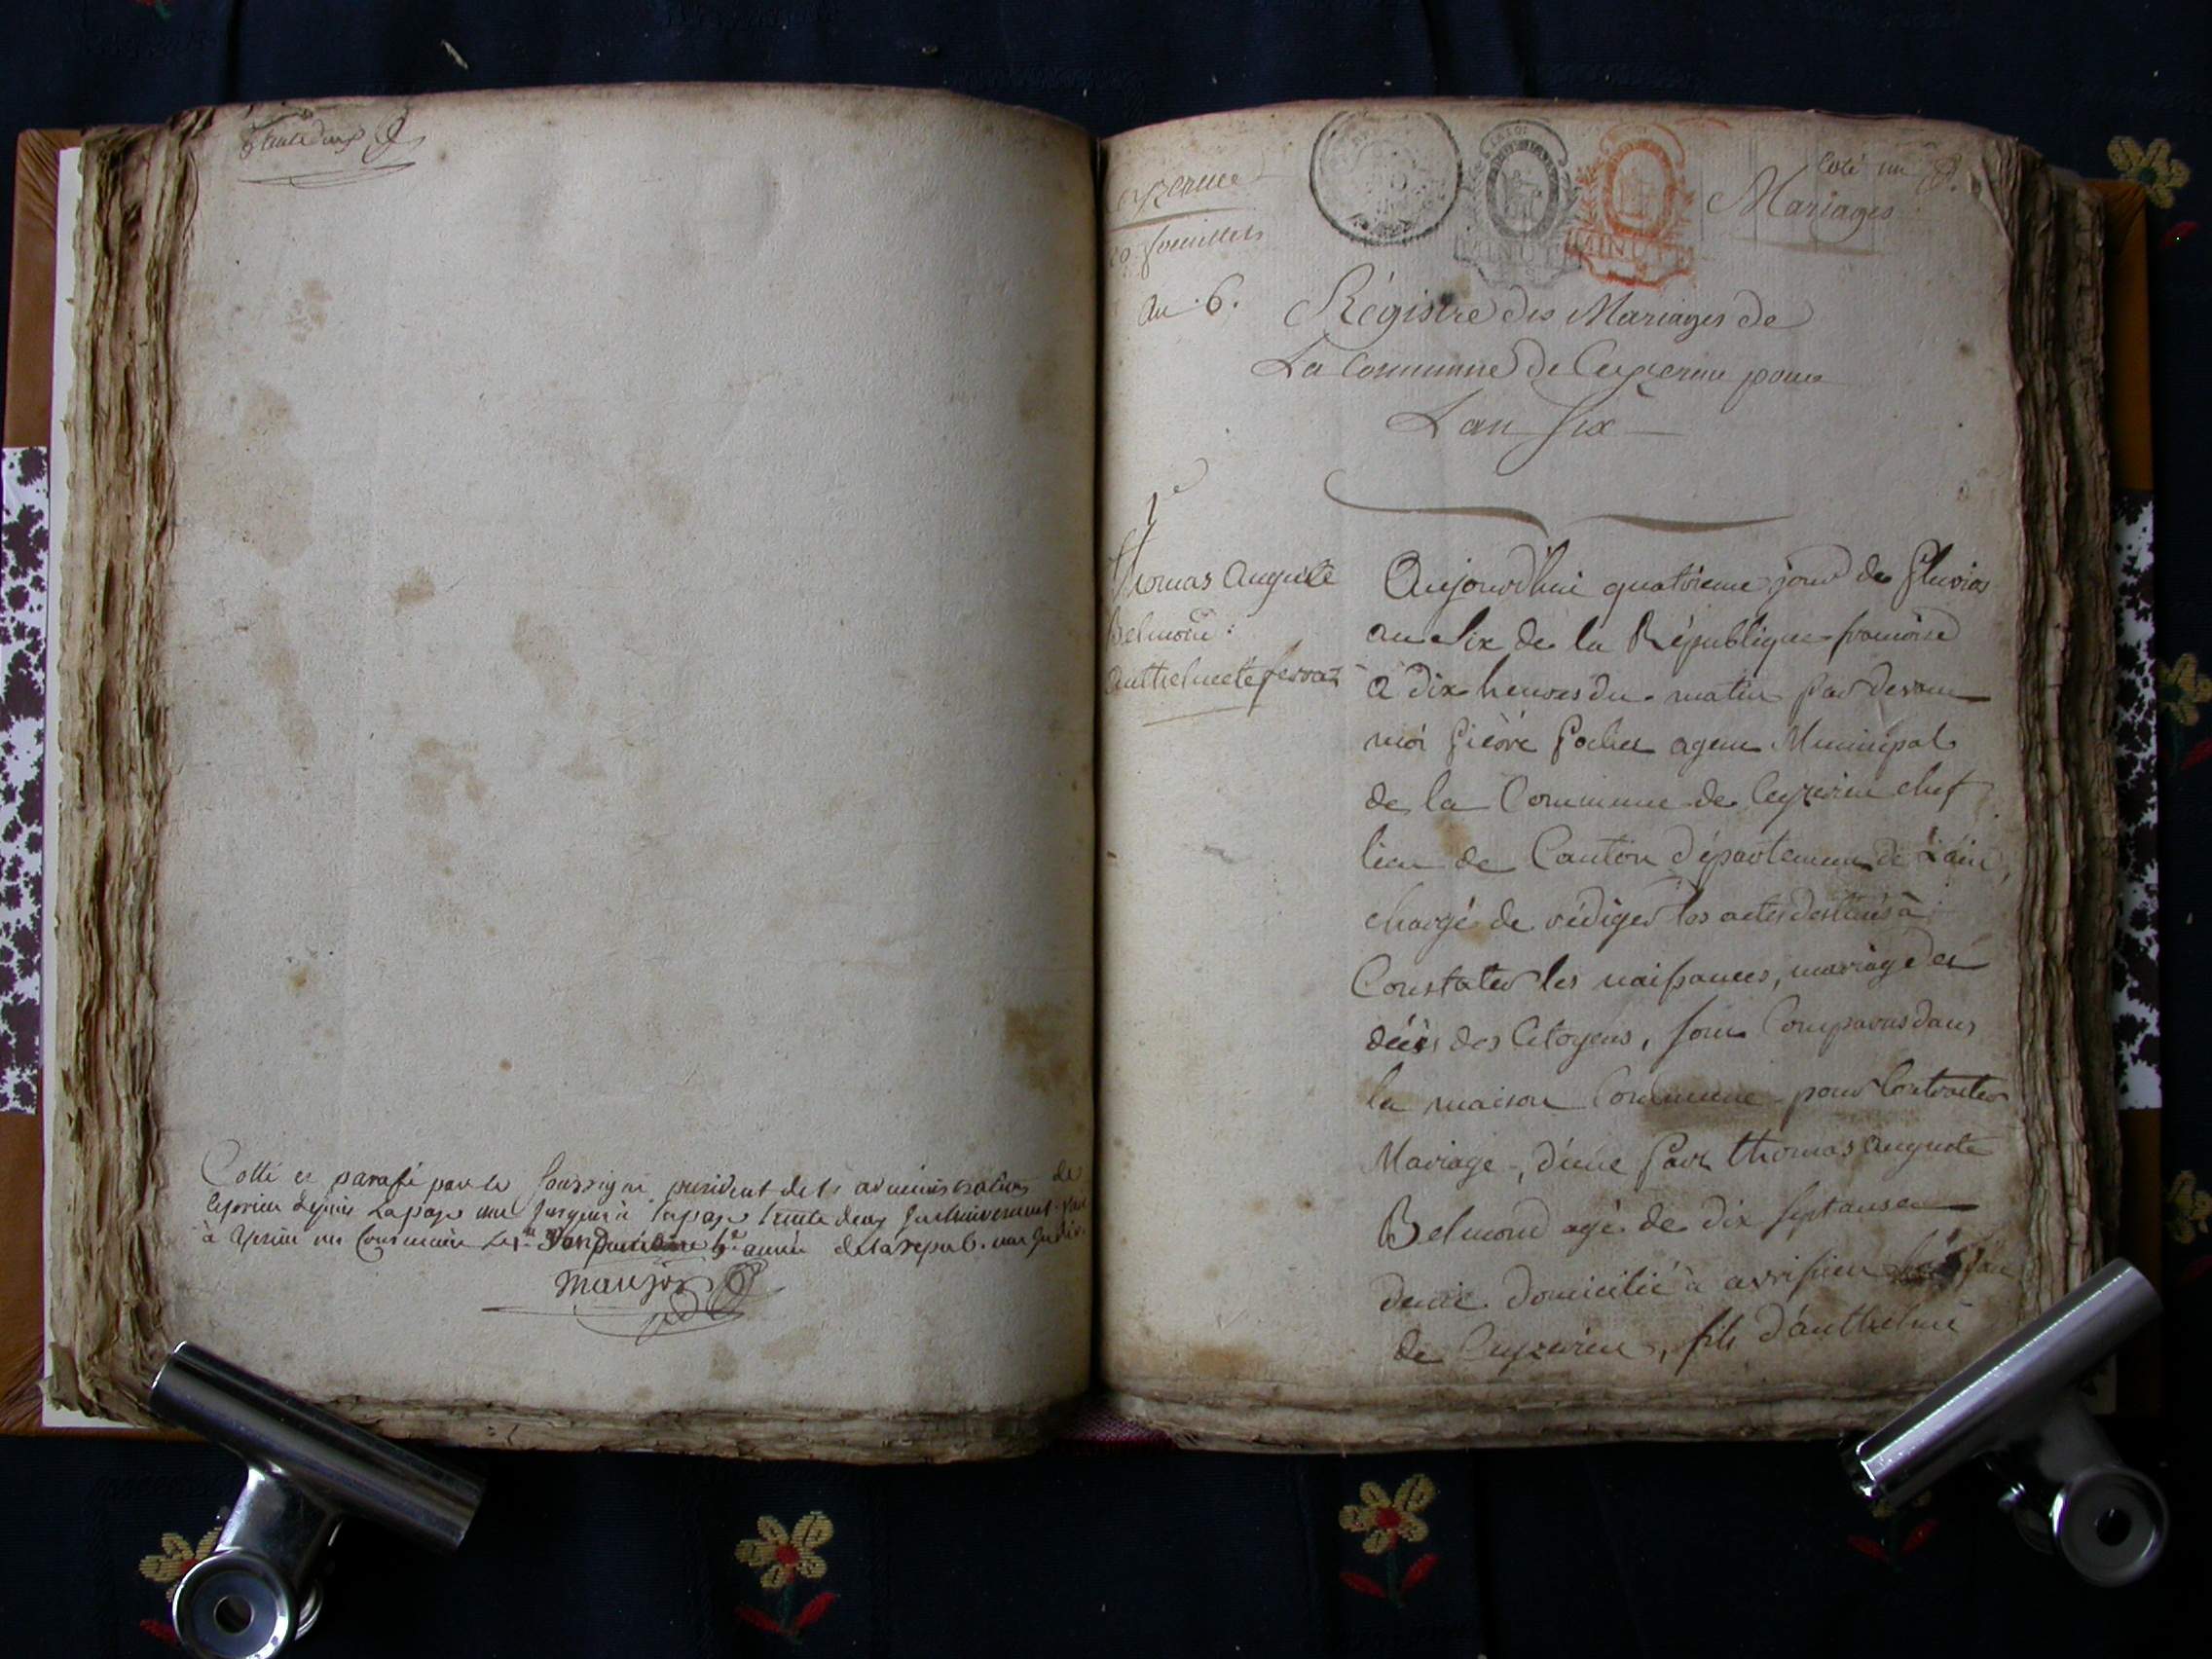 trente deux
Cotté et parafé par le soussigné président de l'administration de
Ceyzerieu depuis la page une jusques à la page trente deux inclusivement. fait
à Ceyzerieu en commune le 1er Vendemiaire 6e année de la repub. une
Manjot
Ceyzerieu
20 feuillets
an . 6 .
MINUTE
MINUTE
Coté un
Mariages
Régistre des Mariages de
La Commune de Ceyzerieu pour
L'an Six
1e
Thomas Auguste
Belmond :
Anthelmete pervaz
Aujourd'hui quatrieme jour de Pluvios
an Six de la République francoise
à dix heures du matin par devant
moi Pierre Pochet agent Municipal
de la Commune de Ceyzerieu chef
lieu de Canton département de L'ain,
chargé de rédiger les actes destinés à
Constater les naissances, mariage et
décès des Citoyens, sont Comparus dans
la maison Commune pour Contracter
Mariage, d'une part thomas auguste
Belmond agé de dix sept ans et
demie domicilié à avrissieu
de Ceyzerieu, fils d'anthelme